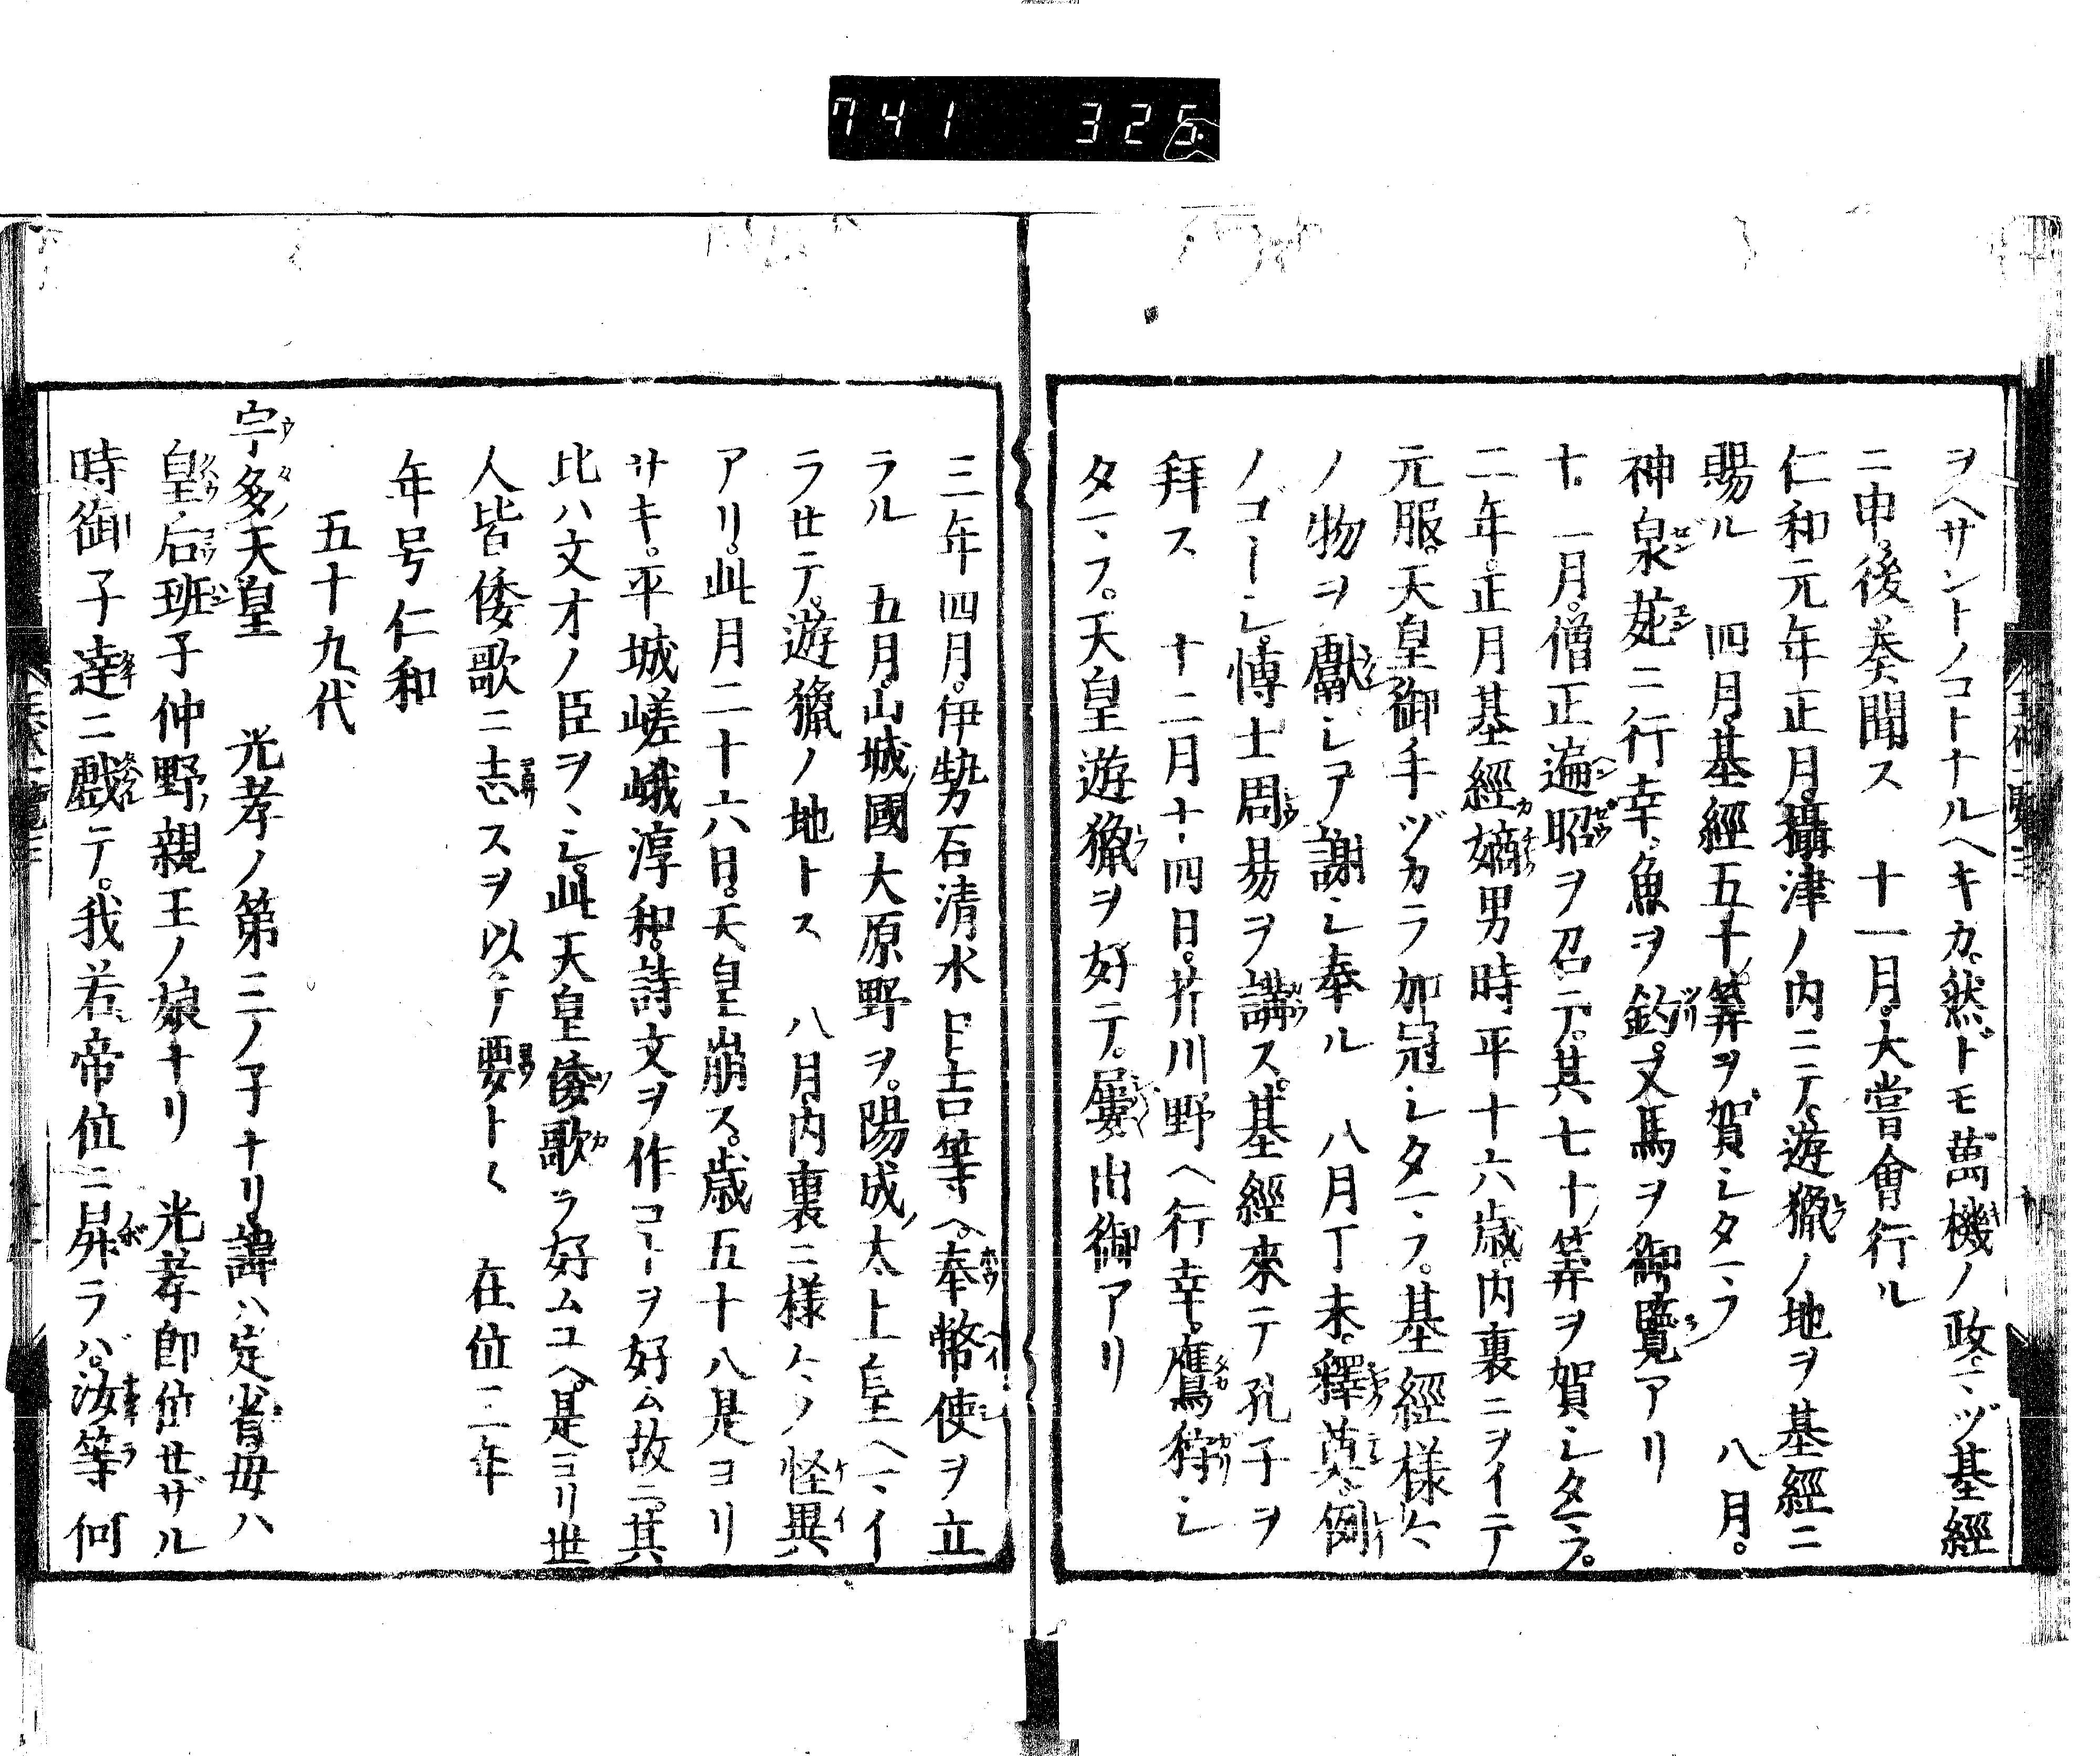 741 325
ヲヘサントノコトナルヘキカ。然ドモ萬機ノ政、マヅ基經
ニ申。後奏聞ス 十一月。大嘗會行ル
仁和元年正月。攝津ノ内ニテ。遊獵ノ地ヲ基經ニ
賜ル 四月。基經五十ノ筭ヲ賀シタマフ 八月。
神泉苑ニ行幸、魚ヲ釣。又馬ヲ御覽アリ
十一月。僧正遍昭ヲ召テ。其七十ノ筭ヲ賀シタマフ。
二年。正月基經嫡男時平十六歳。内裏ニヲイテ
元服。天皇御手ヅカラ加冠シタマフ。基經樣々
ノ物ヲ獻ジテ謝シ奉ル 八月丁未。釋奠例
ノゴトシ。博士周易ヲ講ス。基經來テ孔子ヲ
拜ス 十二月十四日。芹川野ヘ行幸。鷹狩シ
タマフ。天皇遊獵ヲ好テ。屢出御アリ
三年四月。伊勢石清水日吉等ヘ。奉幣使ヲ立
ラル 五月。山城ノ國大原野ヲ。陽成ノ太上皇ヘマイ
ラセテ。遊獵ノ地トス 八月。内裏ニ樣々ノ怪異
アリ。此月二十六日。天皇崩ス。歳五十八是ヨリ
サキ。平城嵯峨淳和。詩文ヲ作コトヲ好ム故ニ。其
比ハ文才ノ臣ヲヽシ。此天皇倭歌ヲ好ムユヘ。是ヨリ世
人皆倭歌ニ志スヲ以テ要トス 在位三年
年号仁和
五十九代
宇多天皇 光孝ノ第三ノ子ナリ諱ハ定省母ハ
皇后班子仲野ノ親王ノ娘ナリ 光孝即位セザル
時御子達ニ戯テ。我若帝位ニ昇ラバ。汝等何